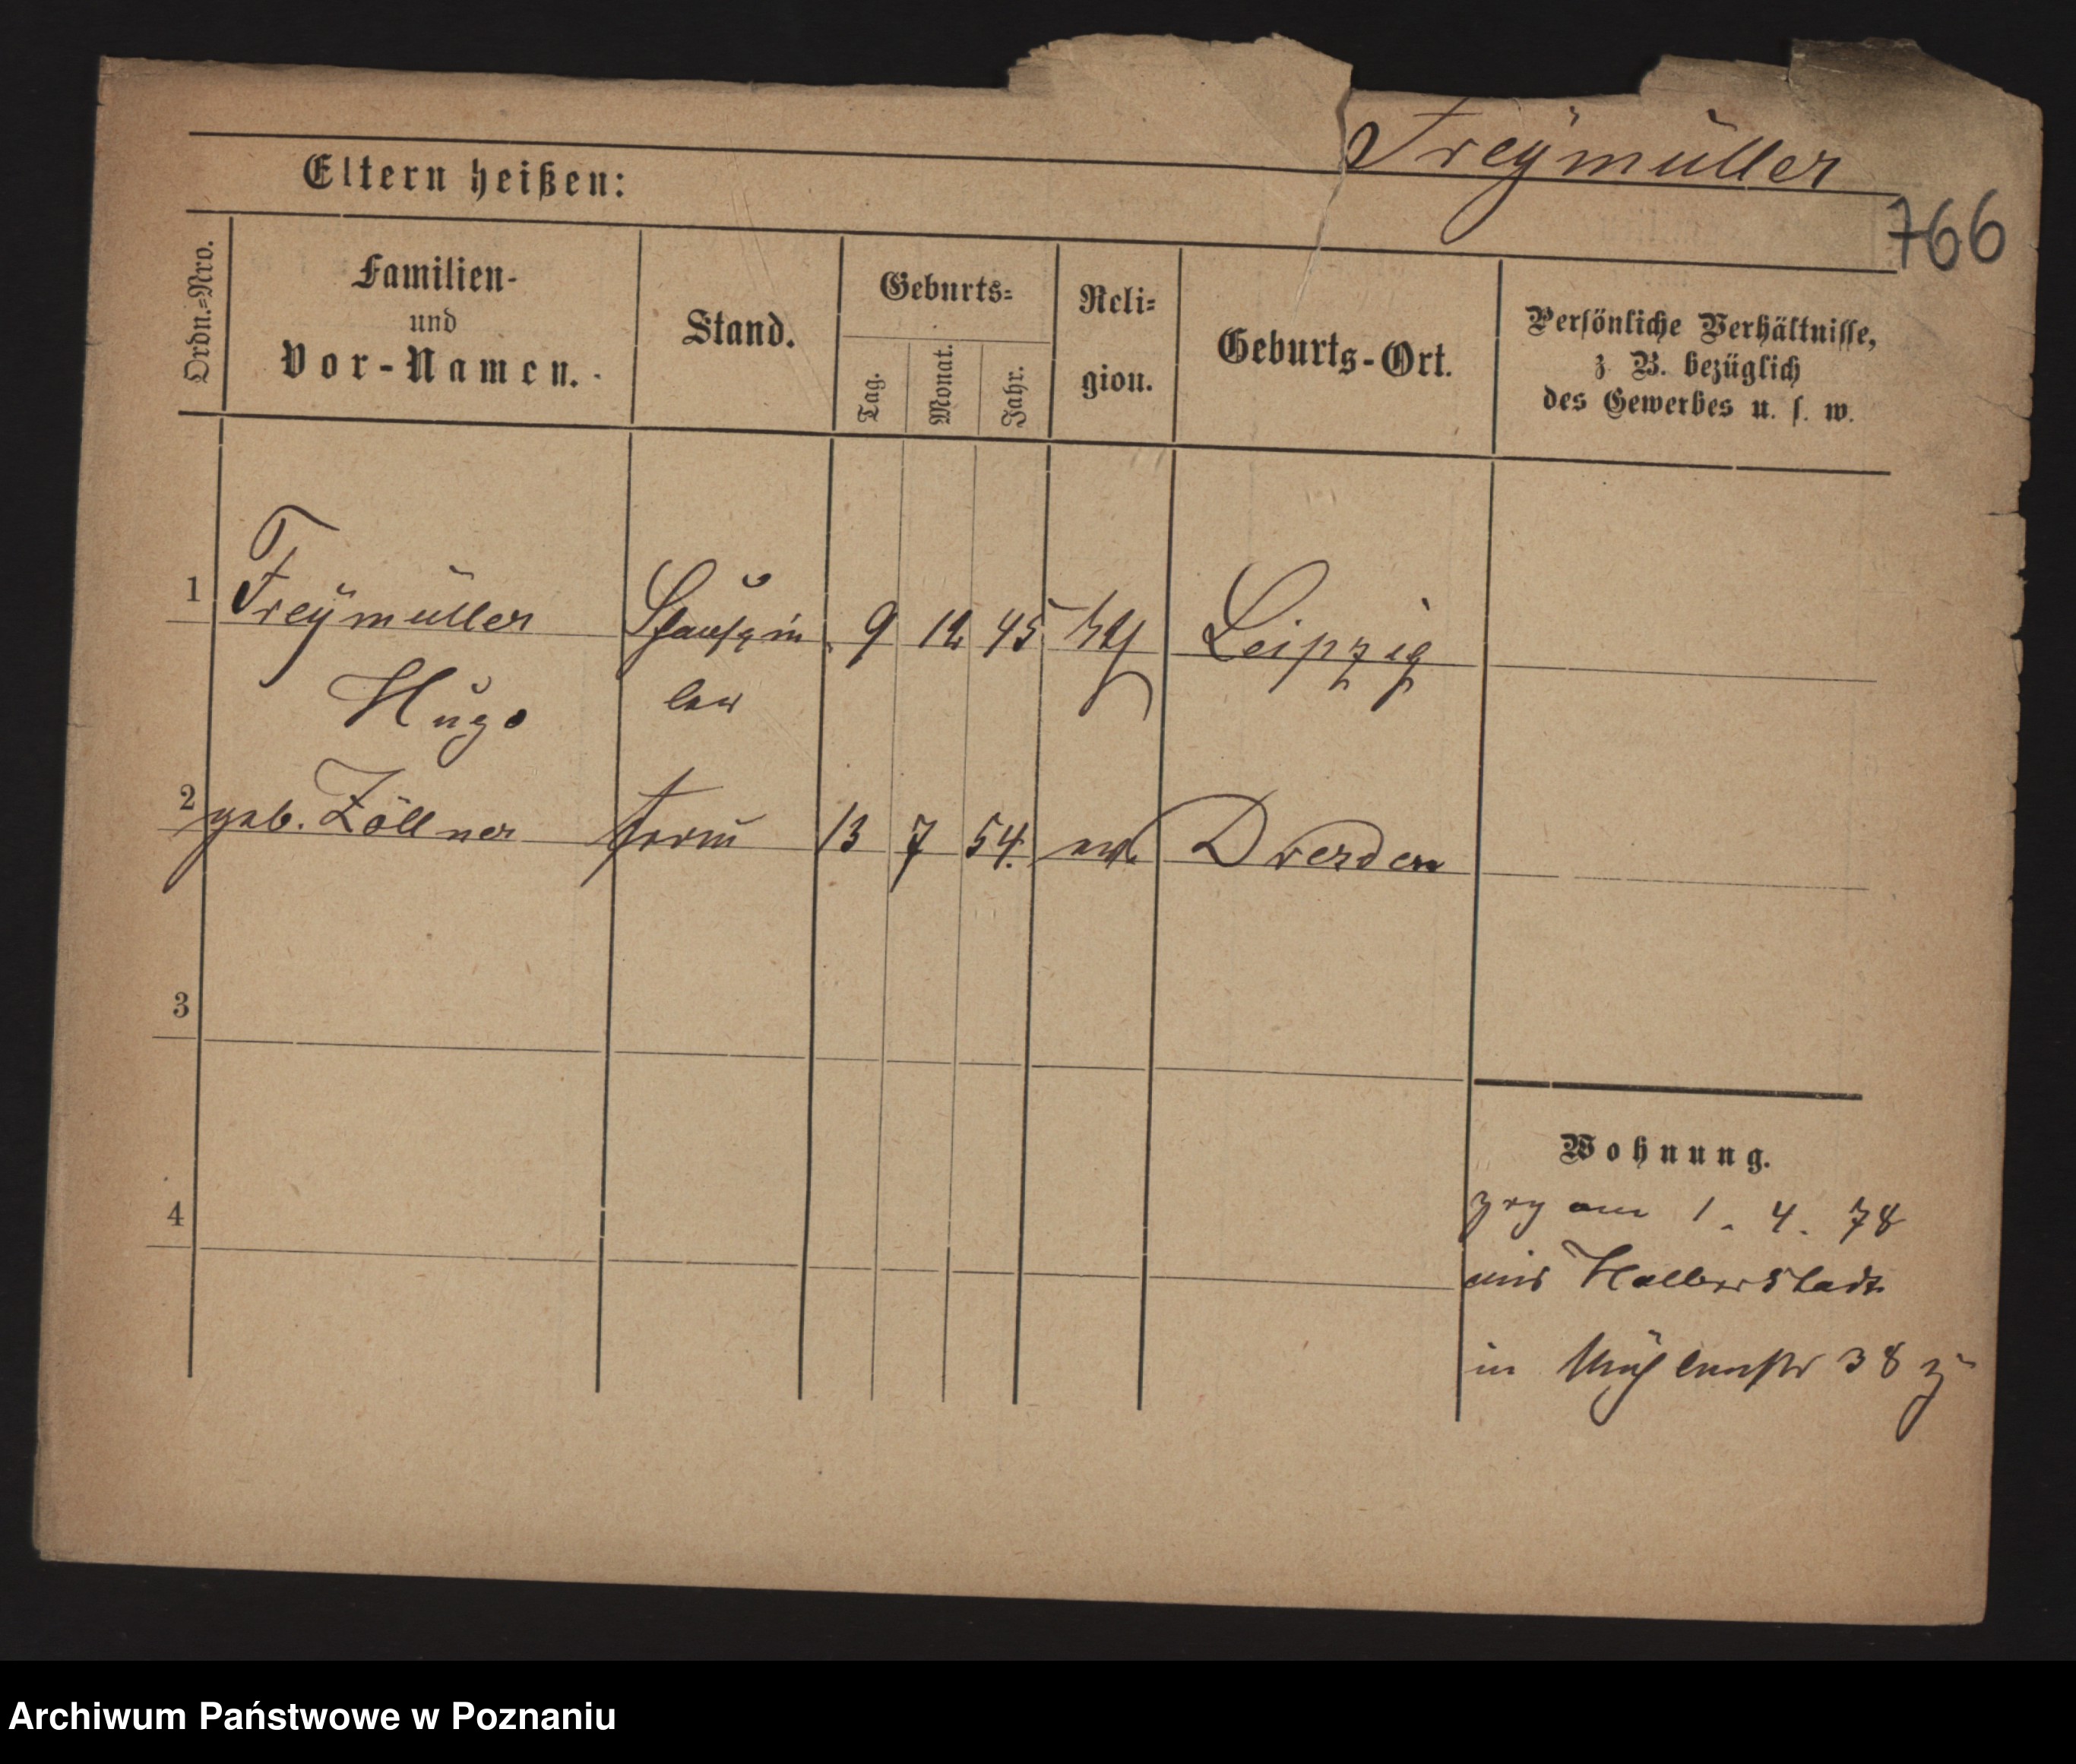 Freymüller
Eltern heißen:
766
Ordn.=Nro.
Familien-
und
Vor-Namen.
Stand.
Geburts=
Tag.
Monat.
Jahr.
Reli=
gion.
Geburts-Ort.
Persönliche Verhältnisse,
z. B. bezüglich
des Gewerbes u. s. w.
1 Freymüller Schauspie 9 12 45 Leipzig
Hugo ler
2 geb. Zöllner Frau 13 7 54. ev. Dresden
3
4
Wohnung.
zog am 1. 4. 78
aus Halberstadt
in Mühlenstr 38 zu
Archiwum Państwowe w Poznaniu